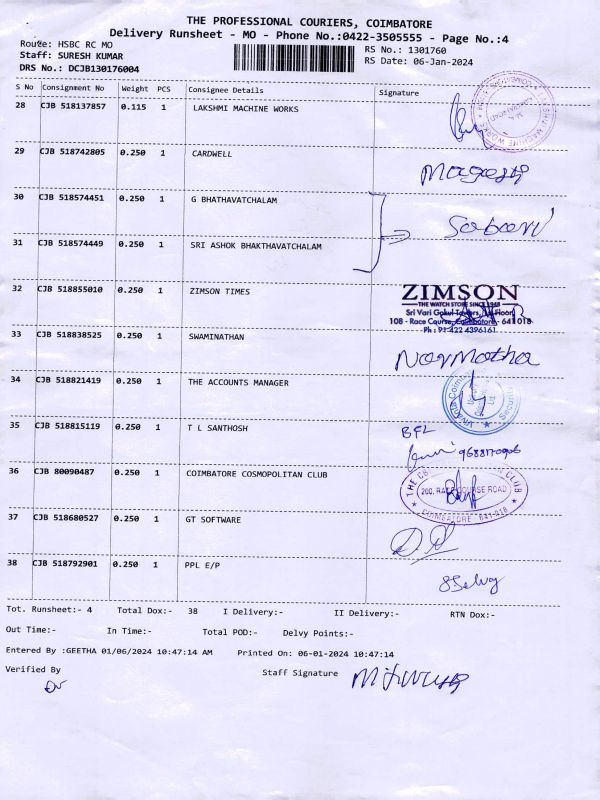 THE PROFESSIONAL COURIERS, COIMBATORE
Delivery Runsheet - MO - Phone No.:0422-3505555 - Page No.:4
Route: HSBC RC MO
RS No.: 1301760
Staff: SURESH KUMAR
RS Date: 06-Jan-2024
DRS No.: DCJB130176004
S No Consignment No Weight PCS Consignee Details Signature
28 CJB 518137857 0.115 1 LAKSHMI MACHINE WORKS
29 CJB 518742805 0.250 1 CARDWELL
30 CJB 518574451 0.250 1 G BHATHAVATCHALAM
31 CJB 518574449 0.250 1 SRI ASHOK BHAKTHAVATCHALAM
32 CJB 518855010 0.250 1 ZIMSON TIMES
ZIMSON
THE WATCH STORE SINCE 1948
Sri Vari Gokul Towers, Floor
108 - Race Course, Coimbatore - 641 018
Ph : 91-422 4396161
33 CJB 518838525 0.250 1 SWAMINATHAN
34 CJB 518821419 0.250 1 THE ACCOUNTS MANAGER
35 CJB 518815119 0.250 1 T L SANTHOSH
BFL
36 CJB 80090487 0.250 1 COIMBATORE COSMOPOLITAN CLUB
200, RACE COURSE ROAD
COIMBATORE - 641 018
37 CJB 518680527 0.250 1 GT SOFTWARE
38 CJB 518792901 0.250 1 PPL E/P
Tot. Runsheet:- 4 Total Dox:- 38 I Delivery:- II Delivery:- RTN Dox:-
Out Time:- In Time:- Total POD:- Delvy Points:-
Entered By :GEETHA 01/06/2024 10:47:14 AM Printed On: 06-01-2024 10:47:14
Verified By Staff Signature